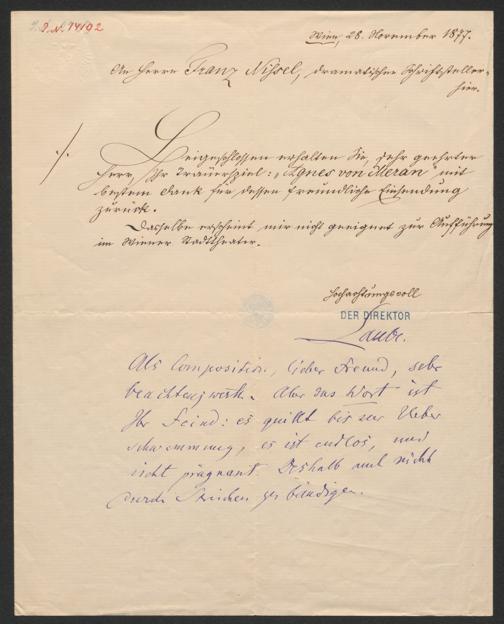 J. N. 74192
Wien, 28. November 1877.
An Herrn Franz Nissel, dramatischer Schriftsteller
hier.
./.
Beigeschlossen erhalten Sie, sehr geehrter
Herr, Ihr Trauerspiel: „Agnes von Meran" mit
bestem Dank für dessen freundliche Einsendung
zurück.
Dasselbe erscheint mir nicht geeignet zur Aufführung
im Wiener Stadttheater.
Hochachtungsvoll
DER DIREKTOR
Laube.
Als Composition, lieber Freund, sehr
beachtenswerth. Aber das Wort ist
Ihr Feind: es quillt bis zur Ueber
schwemmung, es ist endlos, und
nicht prägnant. Deshalb auch nicht
durch Streichen zu bändigen.